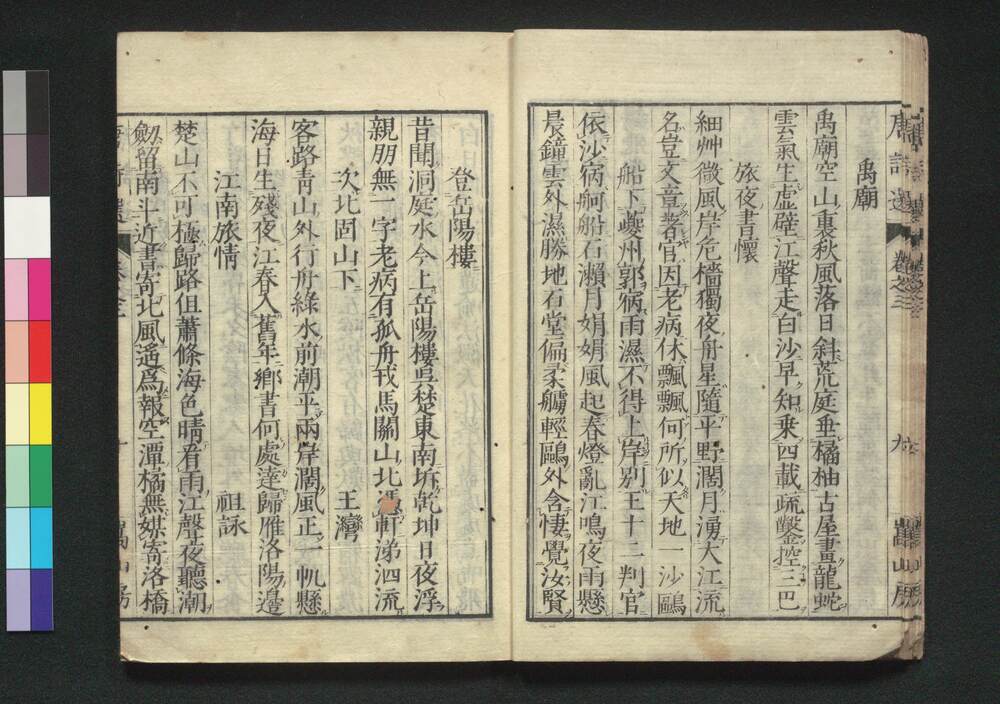 唐詩選 卷之三 九 嵩山房
禹廟
禹廟空山裏秋風落日斜荒庭垂橘柚古屋畫龍蛇
雲氣生虛壁江聲走白沙早知乘四載疏鑿控三巴
旅夜書懷
細艸微風岸危檣獨夜舟星隨平野濶月湧大江流
名豈文章著官因老病休飄飄何所似天地一沙鷗
船下夔州郭宿雨濕不得上岸別王十二判官
依沙宿舸船石瀨月娟娟風起春燈亂江鳴夜雨懸
晨鐘雲外濕勝地石堂偏柔艣輕鷗外含悽覺汝賢
登岳陽樓
昔聞洞庭水今上岳陽樓吳楚東南坼乾坤日夜浮
親朋無一字老病有孤舟戎馬關山北憑軒涕泗流
次北固山下 王灣
客路青山外行舟綠水前潮平兩岸濶風正一帆懸
海日生殘夜江春入舊年鄉書何處達歸雁洛陽邊
江南旅情 祖詠
楚山不可極歸路但蕭條海色晴看雨江聲夜聽潮
劒留南斗近書寄北風遙爲報空潭橘無媒寄洛橋